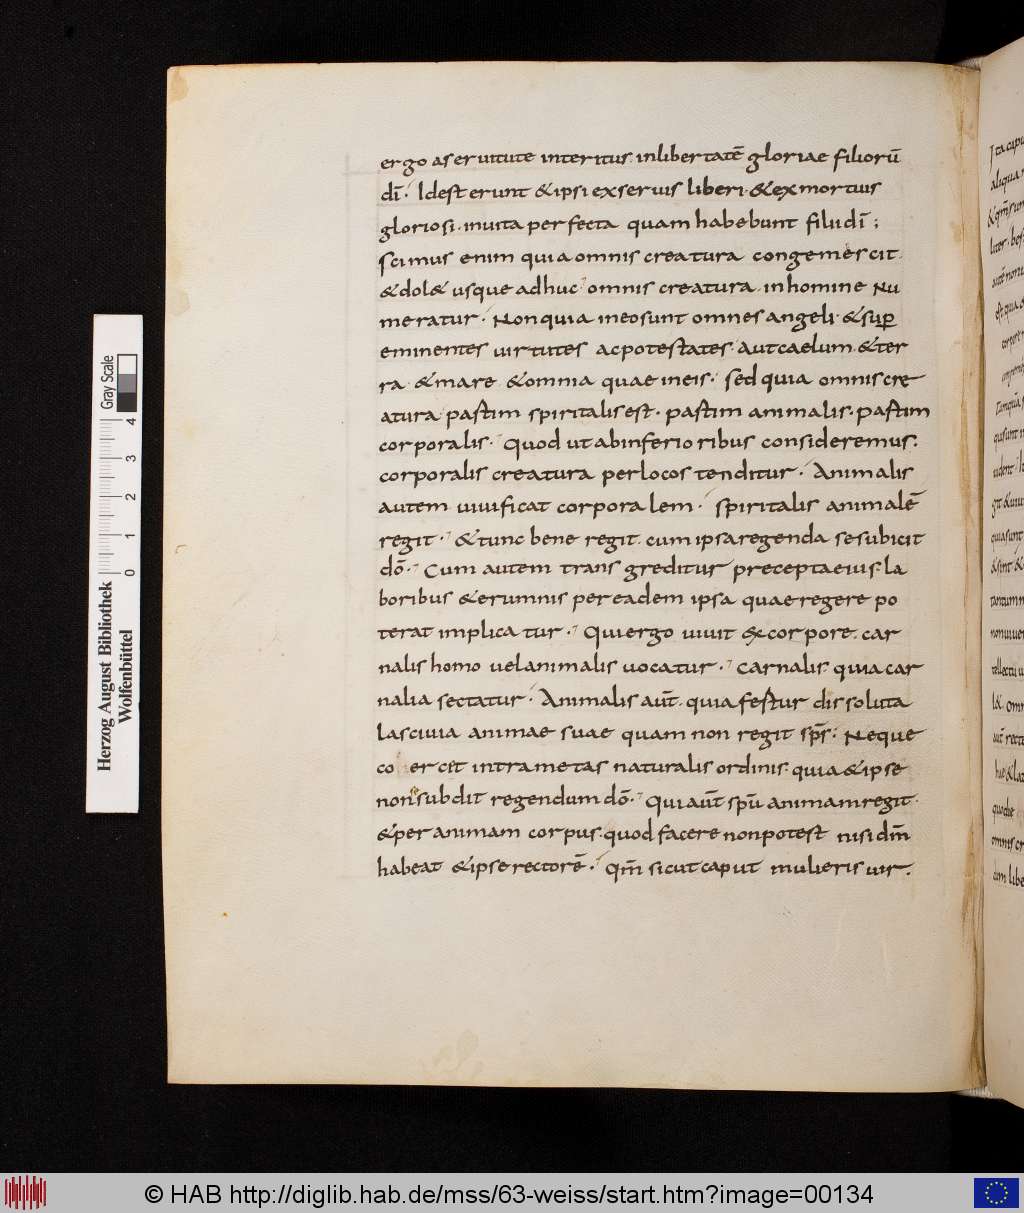 ergo aseruitute interitus. inlibertatē gloriae filiorū
dī. Idest erunt & ipsi exseruis liberi. & ex mortuis
gloriosi. inuita perfecta quam habebunt filii dī;
scimus enim quia omnis creatura congemescit.
& dol& usque adhuc. omnis creatura. inhomine Nu
meratur. Nonquia ineosunt omnes angeli. & sup̄
eminentes uirtutes acpotestates. Autcaelum. & ter
ra & mare & omnia quae ineis. sed quia omnis cre
atura pastim spiritalis est. pastim animalis. pastim
corporalis. Quod ut abinferioribus consideremus.
corporalis creatura perlocos tenditur. Animalis
autem uiuificat corporalem. spiritalis animalē
regit. & tunc bene regit. cum ipsa regenda sesubicit
dō. Cum autem transgreditur precepta eius. la
boribus & erumnis per eadem ipsa quae regere po
terat implicatur. Qui ergo uiuit ex corpore. car
nalis homo uel animalis uocatur. carnalis. quia car
nalia sectatur. Animalis aūt. quia festur dissoluta
lasciuia animae suae quam non regit sp̄s. Neque
co ercit intra metas naturalis ordinis. quia & ipse
non se subdit regendum dō. Qui aūt sp̄u animam regit.
& per animam corpus. quod facere nonpotest nisi dm̄
habeat & ipse rectorē. Qm̄ sicut caput mulieris uir.
Herzog August Bibliothek
Wolfenbüttel
Gray Scale
0 1 2 3 4
© HAB http://diglib.hab.de/mss/63-weiss/start.htm?image=00134